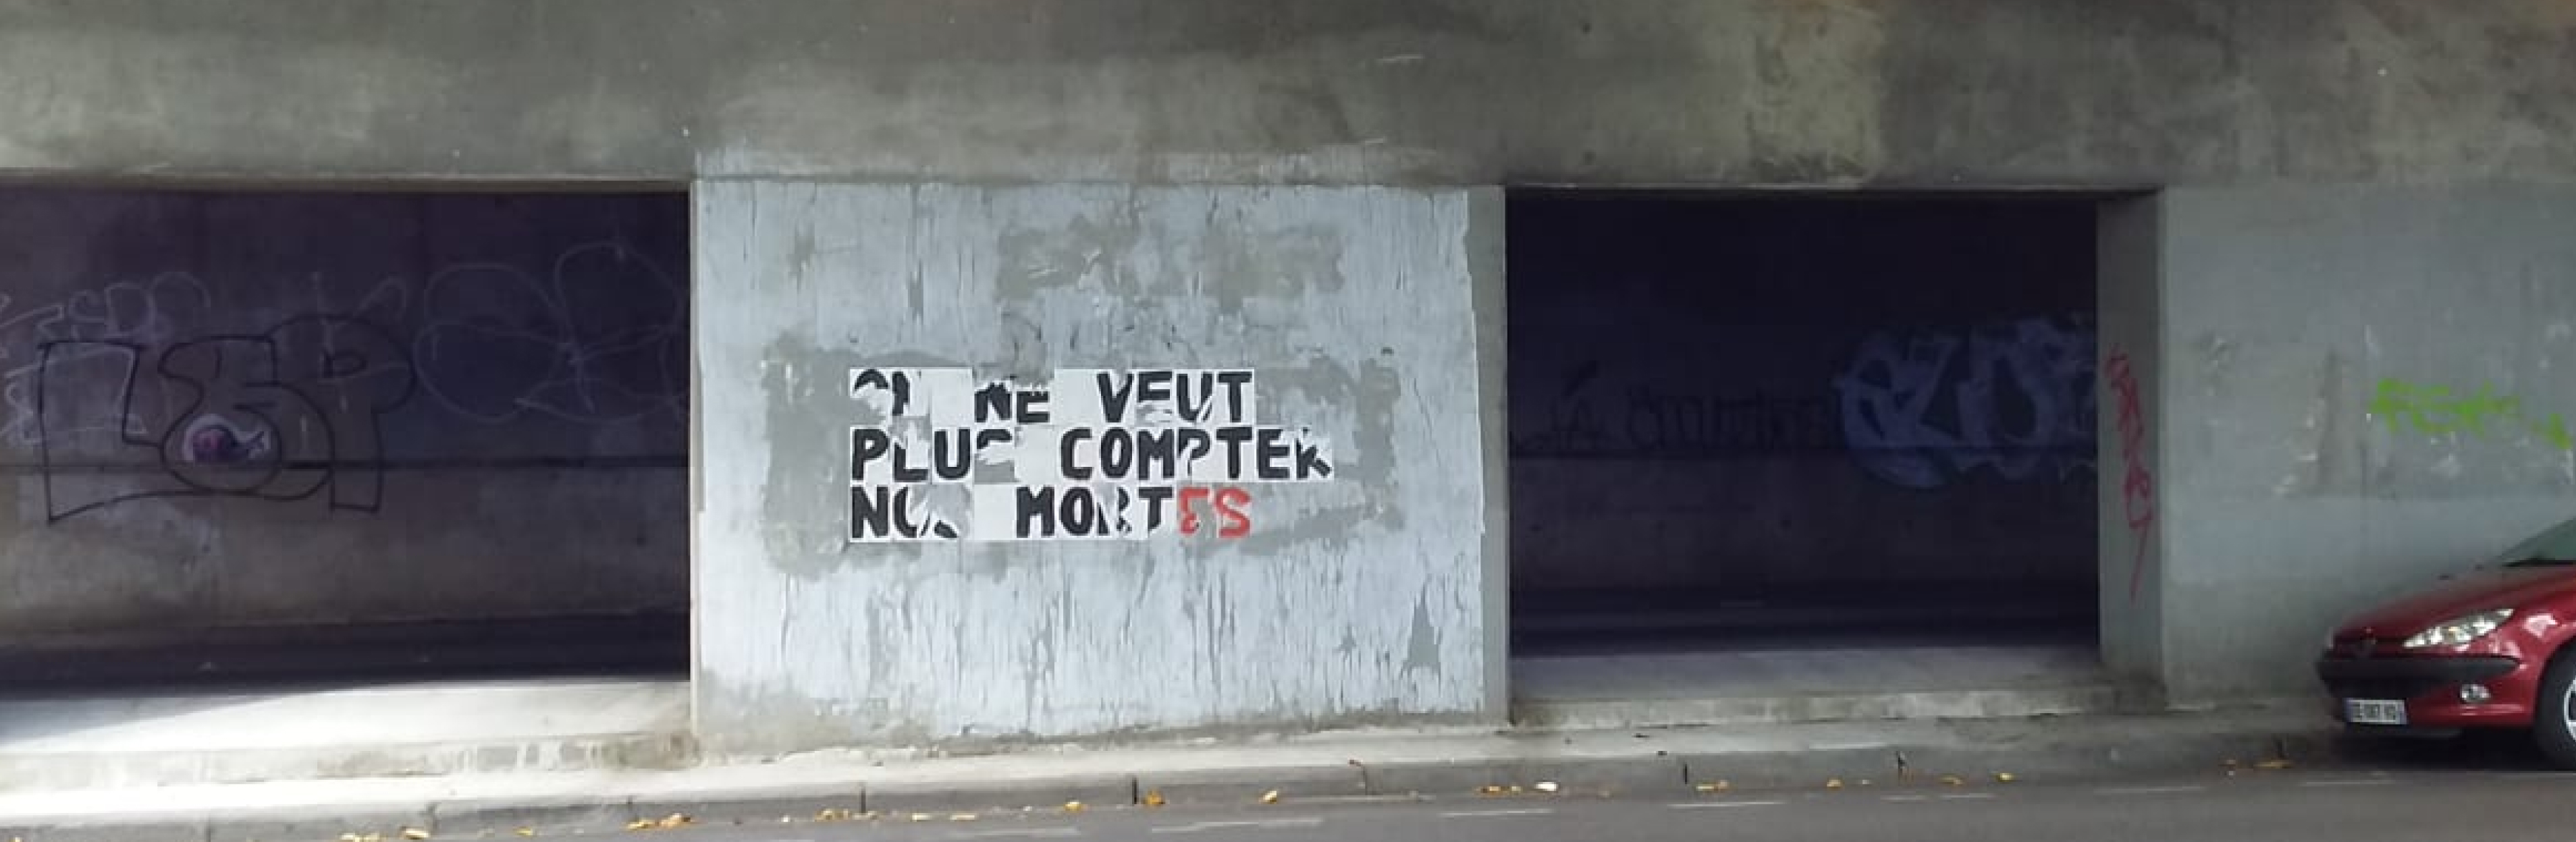 ON NE VEUT
PLUS COMPTER
NOS MORTES